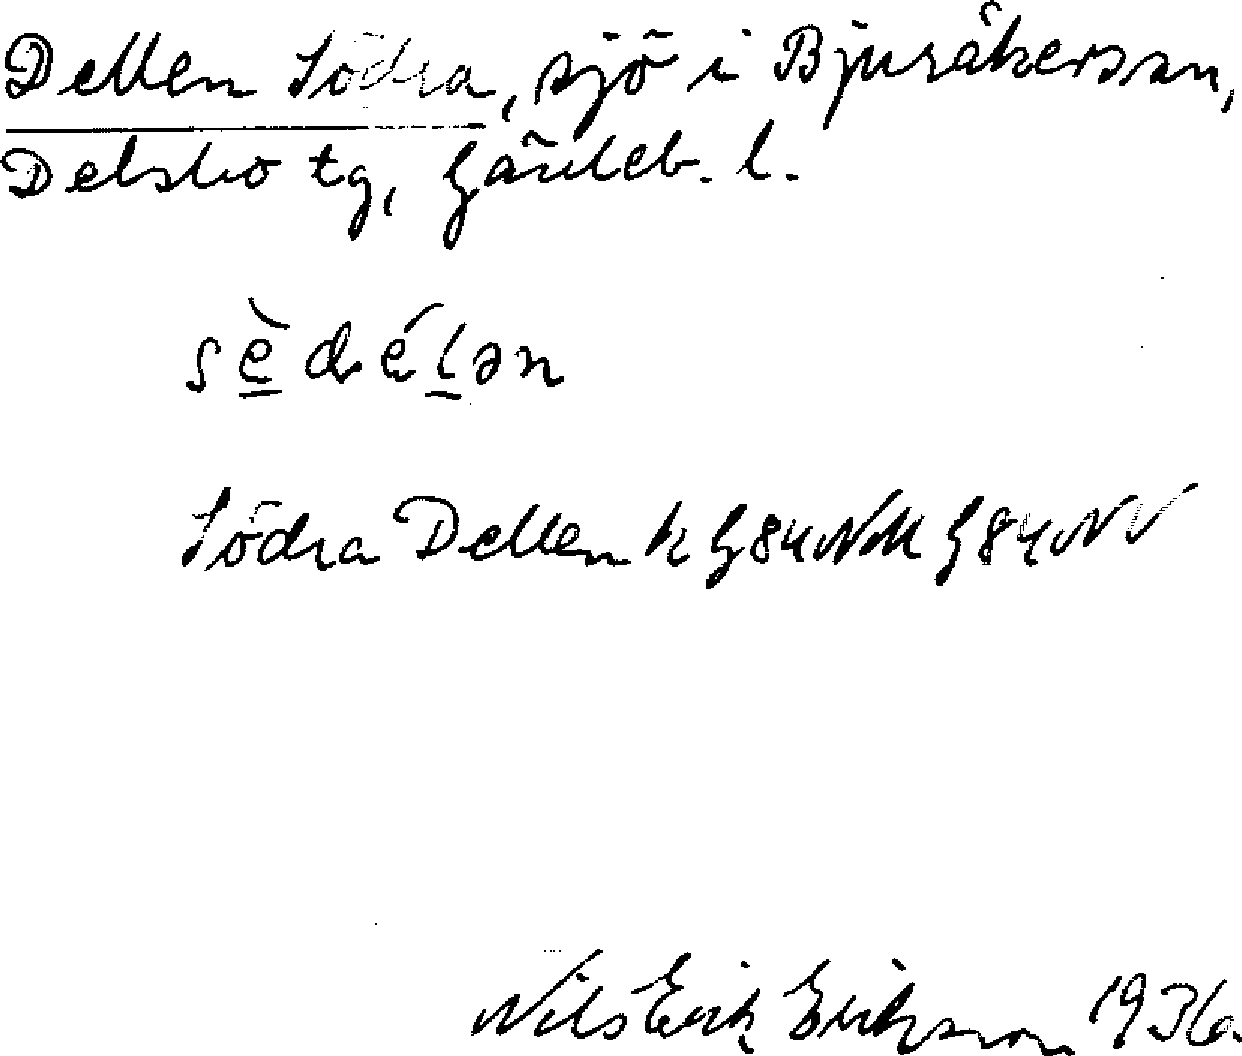 Dellen Södra, sjö i Bjuråkers sn,
Delsbo tg, Gävleb. l.
sè̱ déḻən
Södra Dellen k G84NM G84NV
Nils Erik Erikson 1936.